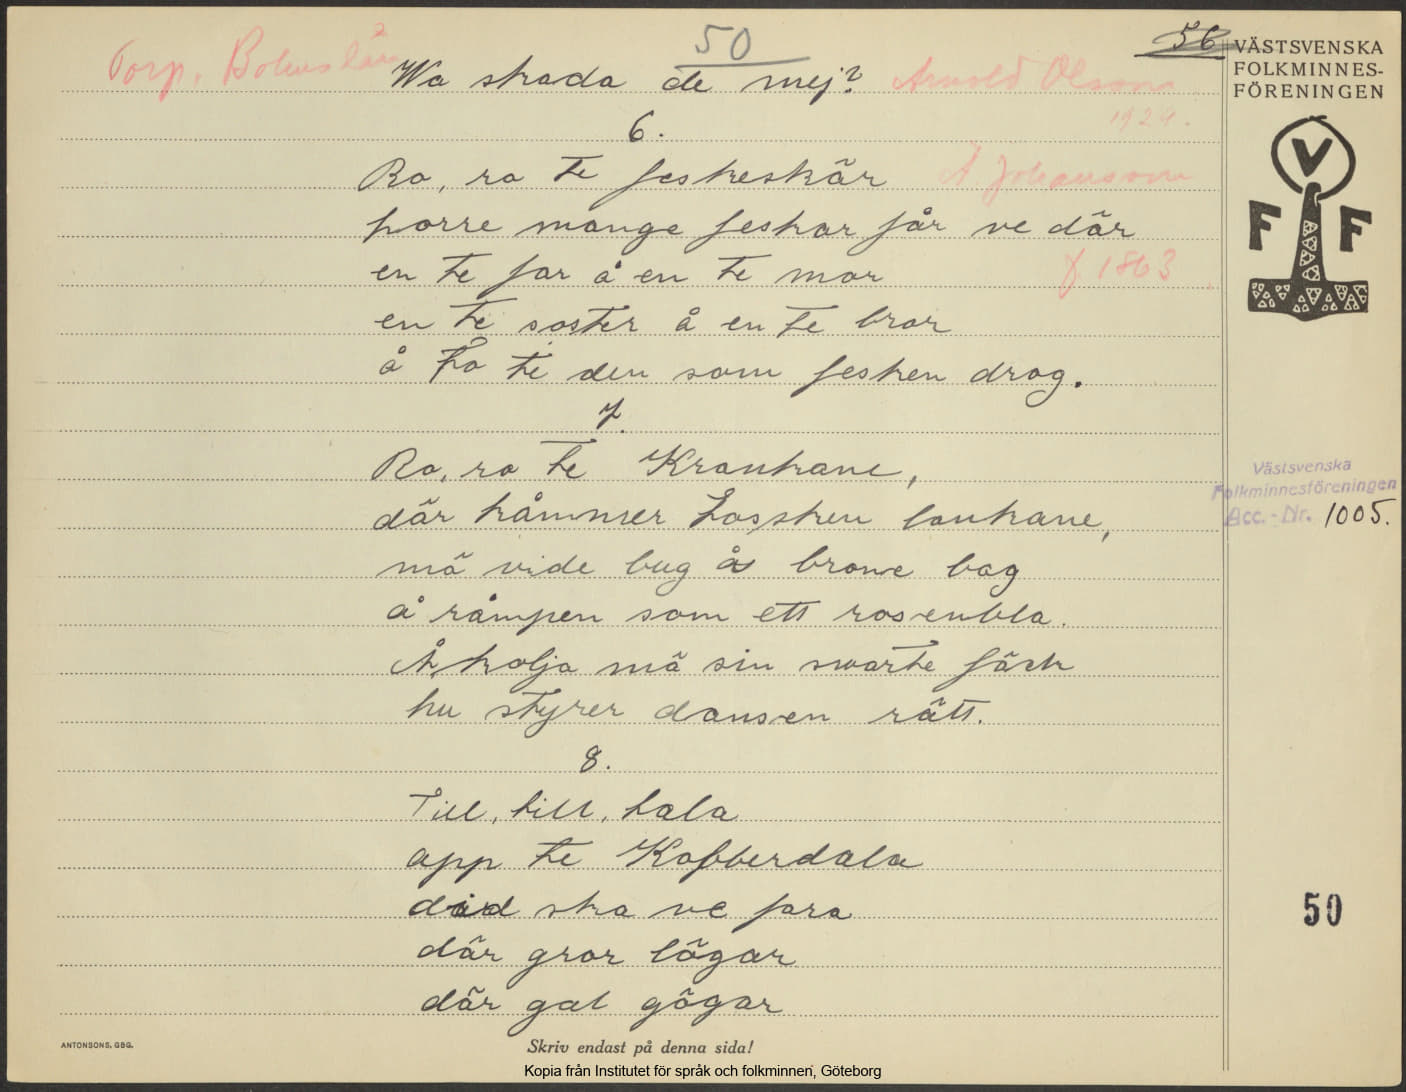 50
56
Torp, Bohuslän
Wa skada de mej?
Arnold Olsson
1924.
6.
Ro, ro te feskeskär
A. Johansson
horre mange feskar får ve där
en te far å en te mor
f. 1863
en te soster å en te bror
å två te den som fesken drog.
7.
Ro, ro te Krankane,
där kåmmer Lassken lankane,
mä vide bug ås brone bag
å råmpen som ett rosenbla.
Å kolja mä sin swarte fäck
hu styrer dansen rätt.
8.
Till, till, tala
app te Kobberdala
did ska ve fara
där gror lögar
där gal gögar
VÄSTSVENSKA
FOLKMINNES-
FÖRENINGEN
V
F F
Västsvenska
Folkminnesföreningen
Acc.-Nr. 1005.
50
ANTONSONS, GBG.
Skriv endast på denna sida!
Kopia från Institutet för språk och folkminnen, Göteborg